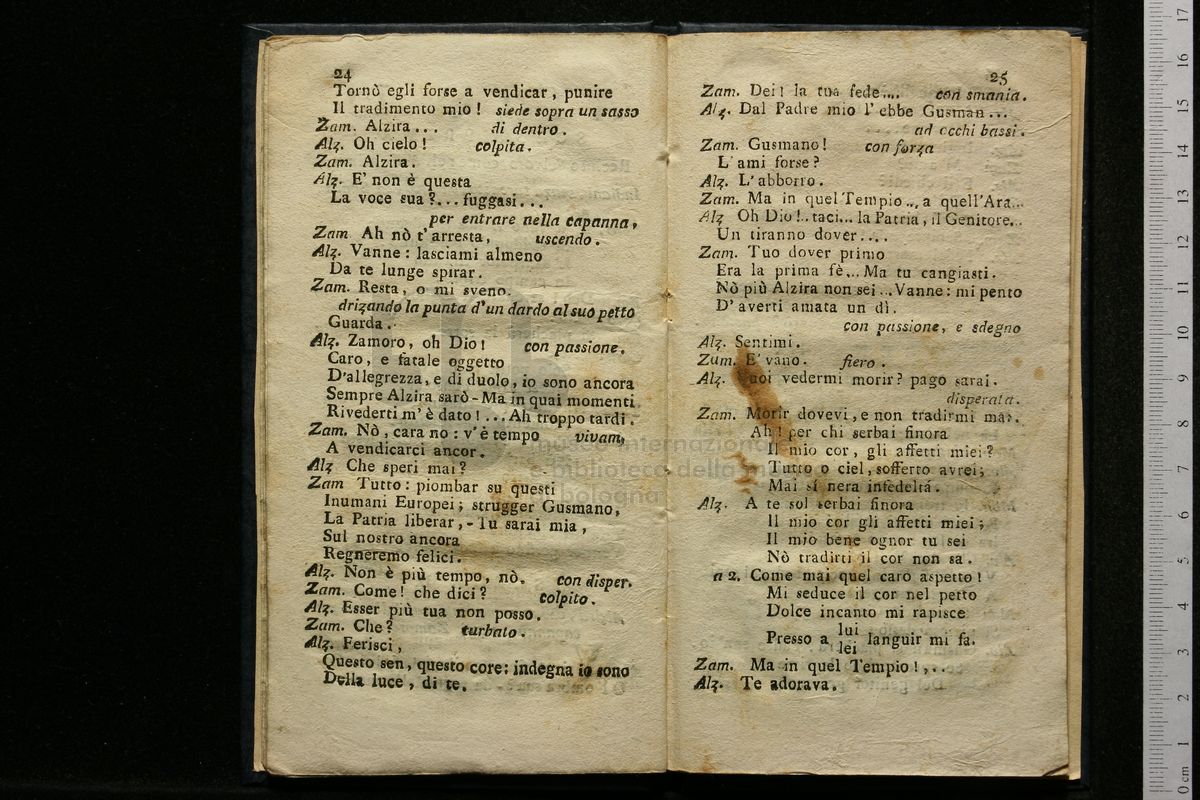 24
Tornò egli forse a vendicar, punire
Il tradimento mio! siede sopra un sasso
Zam. Alzira... di dentro.
Alz. Oh cielo! colpita.
Zam. Alzira.
Alz. E' non è questa
La voce sua?... fuggasi...
per entrare nella capanna,
Zam Ah nò t'arresta, uscendo.
Alz. Vanne: lasciami almeno
Da te lunge spirar.
Zam. Resta, o mi sveno.
drizando la punta d'un dardo al suo petto
Guarda.
Alz. Zamoro, oh Dio! con passione.
Caro, e fatale oggetto
D'allegrezza, e di duolo, io sono ancora
Sempre Alzira sarò - Ma in quai momenti
Rivederti m'è dato!... Ah troppo tardi.
Zam. Nò, cara no: v'è tempo vivam,
A vendicarci ancor.
Alz Che speri mai?
Zam Tutto: piombar su questi
Inumani Europei; strugger Gusmano,
La Patria liberar, - Tu sarai mia,
Sul nostro ancora
Regneremo felici.
Alz. Non è più tempo, nò. con disper.
Zam. Come! che dici? colpito.
Alz. Esser più tua non posso.
Zam. Che? turbato.
Alz. Ferisci,
Questo sen, questo core: indegna io sono
Della luce, di te.
25
Zam. Dei! la tua fede.... con smania.
Alz. Dal Padre mio l'ebbe Gusman...
ad occhi bassi.
Zam. Gusmano! con forza
L'ami forse?
Alz. L'abborro.
Zam. Ma in quel Tempio... a quell'Ara...
Alz Oh Dio!.. taci... la Patria, il Genitore...
Un tiranno dover....
Zam. Tuo dover primo
Era la prima fè... Ma tu cangiasti.
Nò più Alzira non sei... Vanne: mi pento
D'averti amata un dì.
con passione, e sdegno
Alz. Sentimi.
Zam. E' vano. fiero.
Alz. Vuoi vedermi morir? pago sarai.
disperata.
Zam. Morir dovevi, e non tradirmi mai.
Ah! per chi serbai finora
Il mio cor, gli affetti miei?
Tutto o ciel, sofferto avrei;
Mai sí nera infedeltá.
Alz. A te sol serbai finora
Il mio cor gli affetti miei;
Il mio bene ognor tu sei
Nò tradirti il cor non sa.
a 2. Come mai quel caro aspetto!
Mi seduce il cor nel petto
Dolce incanto mi rapisce
Presso a lui lei languir mi fa.
Zam. Ma in quel Tempio!,..
Alz. Te adorava.
museo internazionale
e biblioteca della musica
bologna